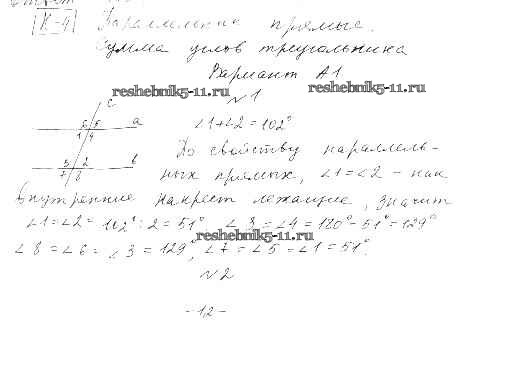 К-4 Параллельные прямые.
Сумма углов треугольника
Вариант А1
reshebnik5-11.ru reshebnik5-11.ru
№1
c
6 5 a
1 4
3 2 b
7 8
∠1+∠2=102°
По свойству параллель-
ных прямых, ∠1=∠2 - как
внутренние накрест лежащие, значит
∠1=∠2= 102°:2=51° ∠3=∠4=180°-51°=129°
reshebnik5-11.ru
∠8=∠6=∠3=129°, ∠7=∠5=∠1=51°.
№2
-12-